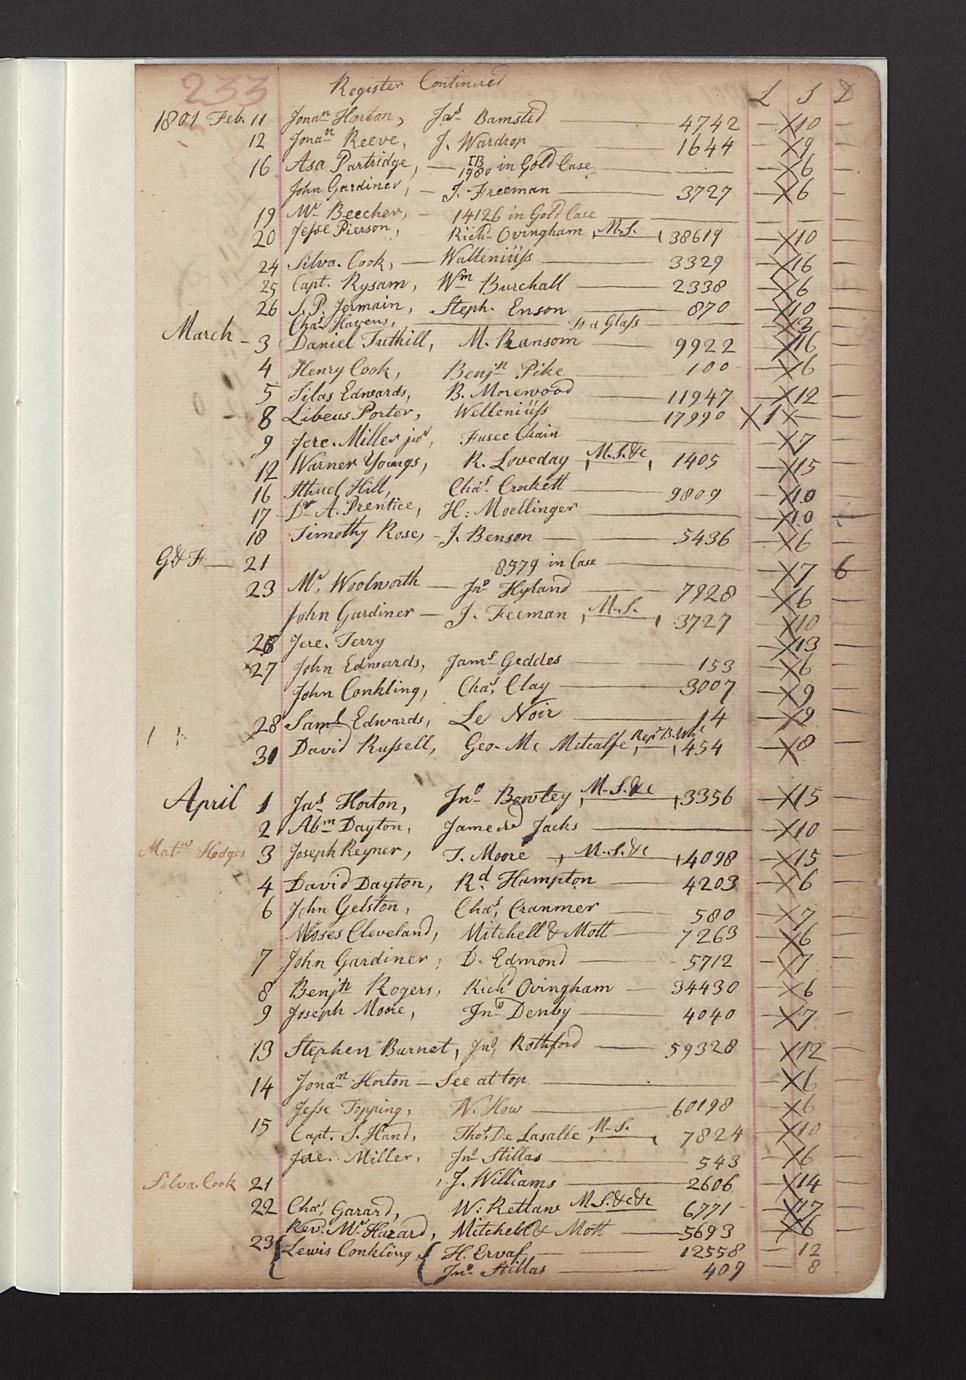 233 Register Continued £ S D
1801 Feb. 11 Jonan Horton, Jas. Bamsted — 4742 — 10 —
12 Jonan Reeve, J. Wardrop — 1644 — 9 —
16 Asa Partridge, — 1780 in Gold Case — 6 —
John Gardiner, — J. Freeman — 3727 — 6 —
19 Mr. Beecher, — 14126 in Gold Case — —
20 Jesse Pierson, Richd. Ovingham, M.S., 38619 — 10 —
24 Silva. Cook, — Walleniüss — 3329 — 16 —
25 Capt. Rysam, Wm Burchall — 2338 — 6 —
26 S. P. Jermain, Steph. Enson — 870 — 10 —
Chas. Havens, — to a Glass — 2 —
March — 3 Daniel Tuthill, M. Ransom — 9922 — 16 —
4 Henry Cook, Benjn Pike — 100 — 6 —
5 Silas Edwards, B. Morewood — 11947 — 12 —
8 Libeus Porter, Welleniüss — 17990 1 — —
9 Jere. Miller junr, Fusee Chain — 7 —
12 Warner Youngs, R. Loveday, M.S.&c, 1405 — 15 —
16 Ithuel Hill, Chas. Crockett — 9809 — 10 —
17 — Dr A. Prentice, H: Moellinger — 10 —
18 Timothy Rose, — J. Benson — 5436 — 6 —
G&F — 21 8579 in Case — 7 6
23 Mr. Woolworth — Jno Hyland — 7928 — 6 —
John Gardiner — J. Feeman, M.S., 3727 — 10 —
26 Jere. Terry — 13 —
27 John Edwards, Jams. Geddes — 153 — 6 —
John Conkling, Chas. Clay — 3007 — 9 —
28 Saml. Edwards, Le Noir — 14 — 9 —
31 David Russell, Geo. Mc Metcalfe, Repr B. Whl, 454 — 8 —
April 1 Jas. Horton, Jno. Bowley, M.S.&c, 3356 — 15 —
2 Abm Dayton, James Jacks — 10 —
Matw Hodges 3 Joseph Reyner, T. Moore, M.S.&c, 4098 — 15 —
4 David Dayton, Rd. Hampton — 4203 — 6 —
6 John Gelston, Chas. Cranmer — 580 — 7 —
Moses Cleveland, Mitchell & Mott — 7263 — 6 —
7 John Gardiner, D. Edmond — 5712 — 7 —
8 Benjn Rogers, Richd Ovingham — 34430 — 6 —
9 Joseph Moore, Jno Denby — 4040 — 7 —
13 Stephen Burnet, Jno. Rothford — 59328 — 12 —
14 Jonan Horton — See at top — 6 —
Jesse Topping, W. How — 60198 — 6 —
15 Capt. S. Hand, Thos. De Lasalle, M.S., 7824 — 10 —
Jere. Miller, Jno Stillas — 543 — 6 —
Silva. Cook 21 J. Williams — 2606 — 14 —
22 Chas. Garard, W. Rettaw M.S.&c&c 6771 — 17 —
Rev. Mr. Hazard, Mitchell & Mott — 5693 — 6 —
23 Lewis Conkling, H. Ervaf — 12558 — 12 —
Jno. Stillas — 409 — 8 —